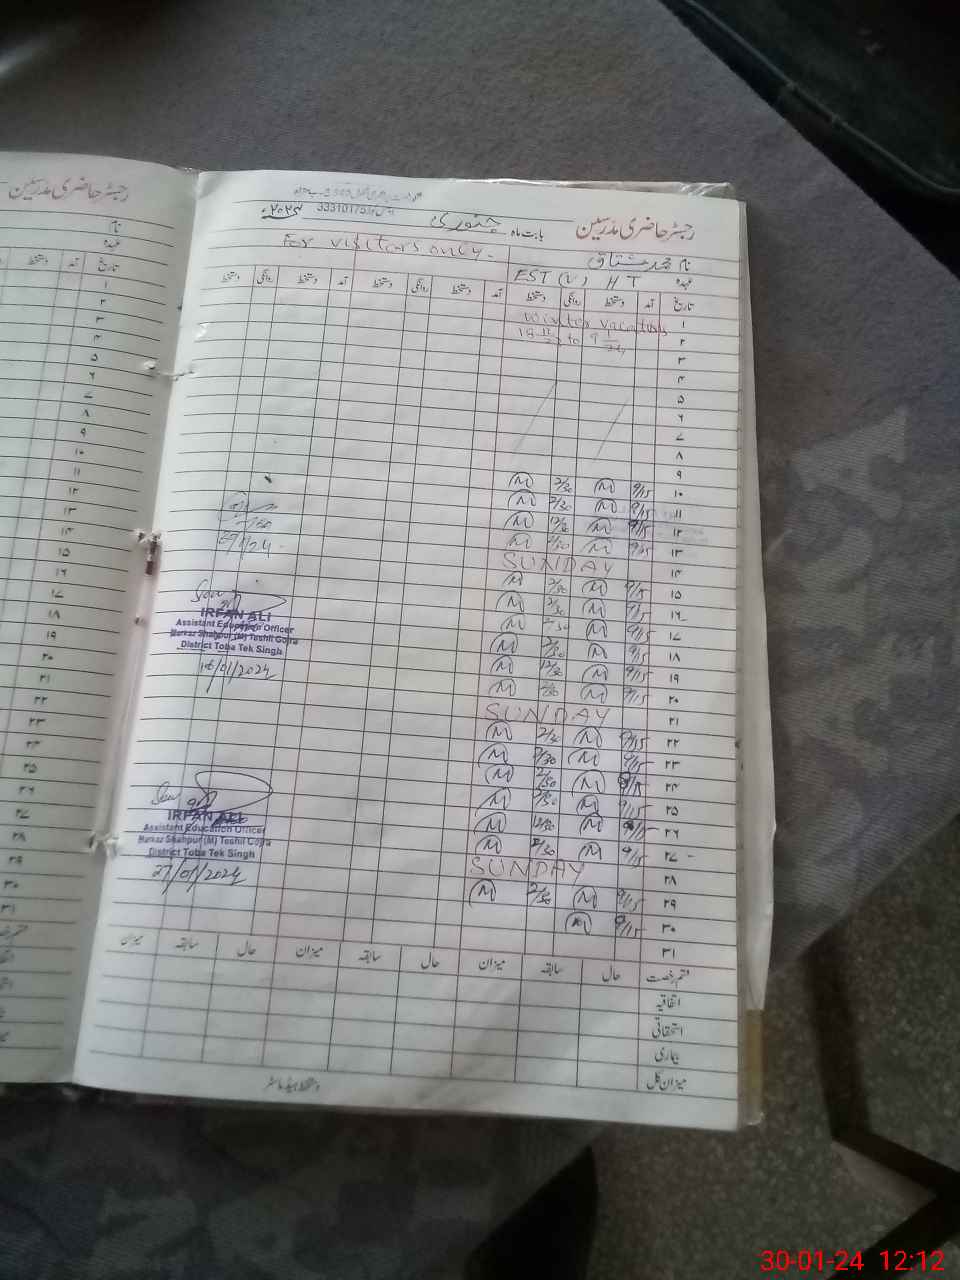 رجسٹر حاضری مدرسین
نام
عہدہ
تاریخ آمد دستخط
۱
۲
۳
۴
۵
۶
۷
۸
۹
۱۰
۱۱
۱۲
۱۳
۱۴
۱۵
۱۶
۱۷
۱۸
۱۹
۲۰
۲۱
۲۲
۲۳
۲۴
۲۵
۲۶
۲۷
۲۸
۲۹
۳۰
۳۱
رجسٹر حاضری مدرسین بابت ماہ جنوری ۲۰۲۴ء
For visitors only.
نام محمد مشتاق
عہدہ EST (V) HT
تاریخ آمد دستخط روانگی دستخط آمد دستخط روانگی دستخط آمد دستخط روانگی دستخط
۱ Winter vacations
۲ 18 12/23 to 9 1/24
۳
۴
۵
۶
۷
۸
۹
۱۰ 9/15 M 2/30 M
۱۱ 9/15 M 2/30 M
۱۲ 9/15 M 12/30 M
۱۳ 9/15 M 2/30 M
۱۴ SUNDAY
۱۵ 9/15 M 2/30 M
۱۶ 9/15 M 2/30 M
۱۷ 9/15 M 2/30 M
۱۸ 9/15 M 2/30 M
۱۹ 9/15 M 12/30 M
۲۰ 9/15 M 2/30 M
۲۱ SUNDAY
۲۲ 9/15 M M
۲۳ 9/15 M 2/30 M
۲۴ M 2/30 M
۲۵ 9/15 M 2/30 M
۲۶ 9/15 M 12/30 M
۲۷ 9/15 M 2/30 M
۲۸ SUNDAY
۲۹ 9/15 M 2/30 M
۳۰ 9/15 M
۳۱
IRFAN ALI
Assistant Education Officer
Markaz Shahpur (M) Teshil Gojra
District Toba Tek Singh
16/01/2024
IRFAN ALI
Assistant Education Officer
Markaz Shahpur (M) Teshil Gojra
District Toba Tek Singh
27/01/2024
قسم رخصت حال سابقہ میزان حال سابقہ میزان حال سابقہ میزان
اتفاقیہ
استحقاقی
بیماری
میزان کل
دستخط ہیڈ ماسٹر
30-01-24 12:12